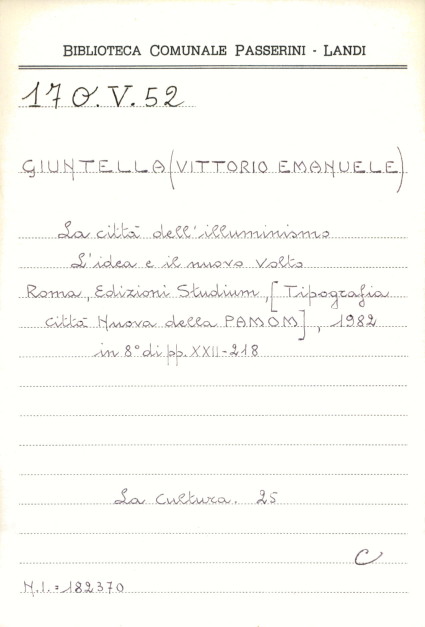 BIBLIOTECA COMUNALE PASSERINI - LANDI
170.V.52
GIUNTELLA (VITTORIO EMANUELE)
La città dell'illuminismo
L'idea e il nuovo volto
Roma, Edizioni Studium, [Tipografia
città Nuova della PAMOM], 1982
in 8° di pp. XXII-218
La cultura. 25
C
N.I. = 182370